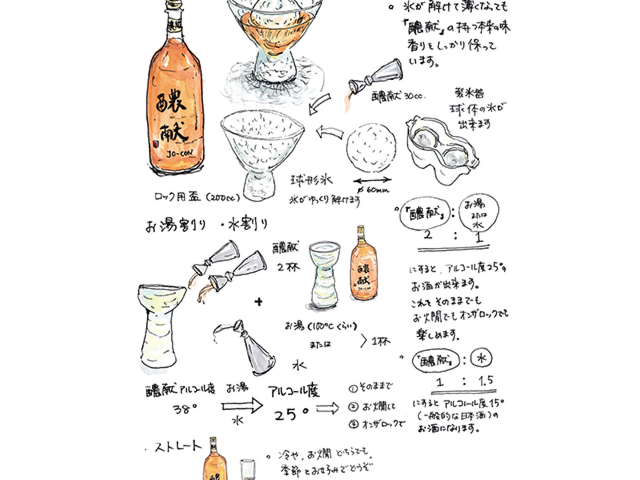 。氷が解けて薄くなっても
『醲献』の持つ本来の味
香りをしっかり保って
います。
醲献
JO-CON
醲献 30cc.
製氷器
球体の氷が
出来ます
球形氷
氷がゆっくり解けます
φ60mm
ロック用盃(200cc)
お湯割り・水割り
醲献
2杯
醲献
+
お湯(100℃くらい)
または
水
>1杯
。『醲献』 : お湯または水
2 : 1
にすると、アルコール度25°の
お酒が出来ます。
これをそのままでも
お燗でもオンザロックでも
楽しめます。
。『醲献』 : 水
1 : 1.5
にするとアルコール度15°
(一般的な日本酒)の
お酒になります。
醲献アルコール度
38°
お湯
水
アルコール度
25°
①そのままで
②お燗して
③オンザロックで
・ストレート
。冷や、お燗どちらでも。
季節とお好みでどうぞ